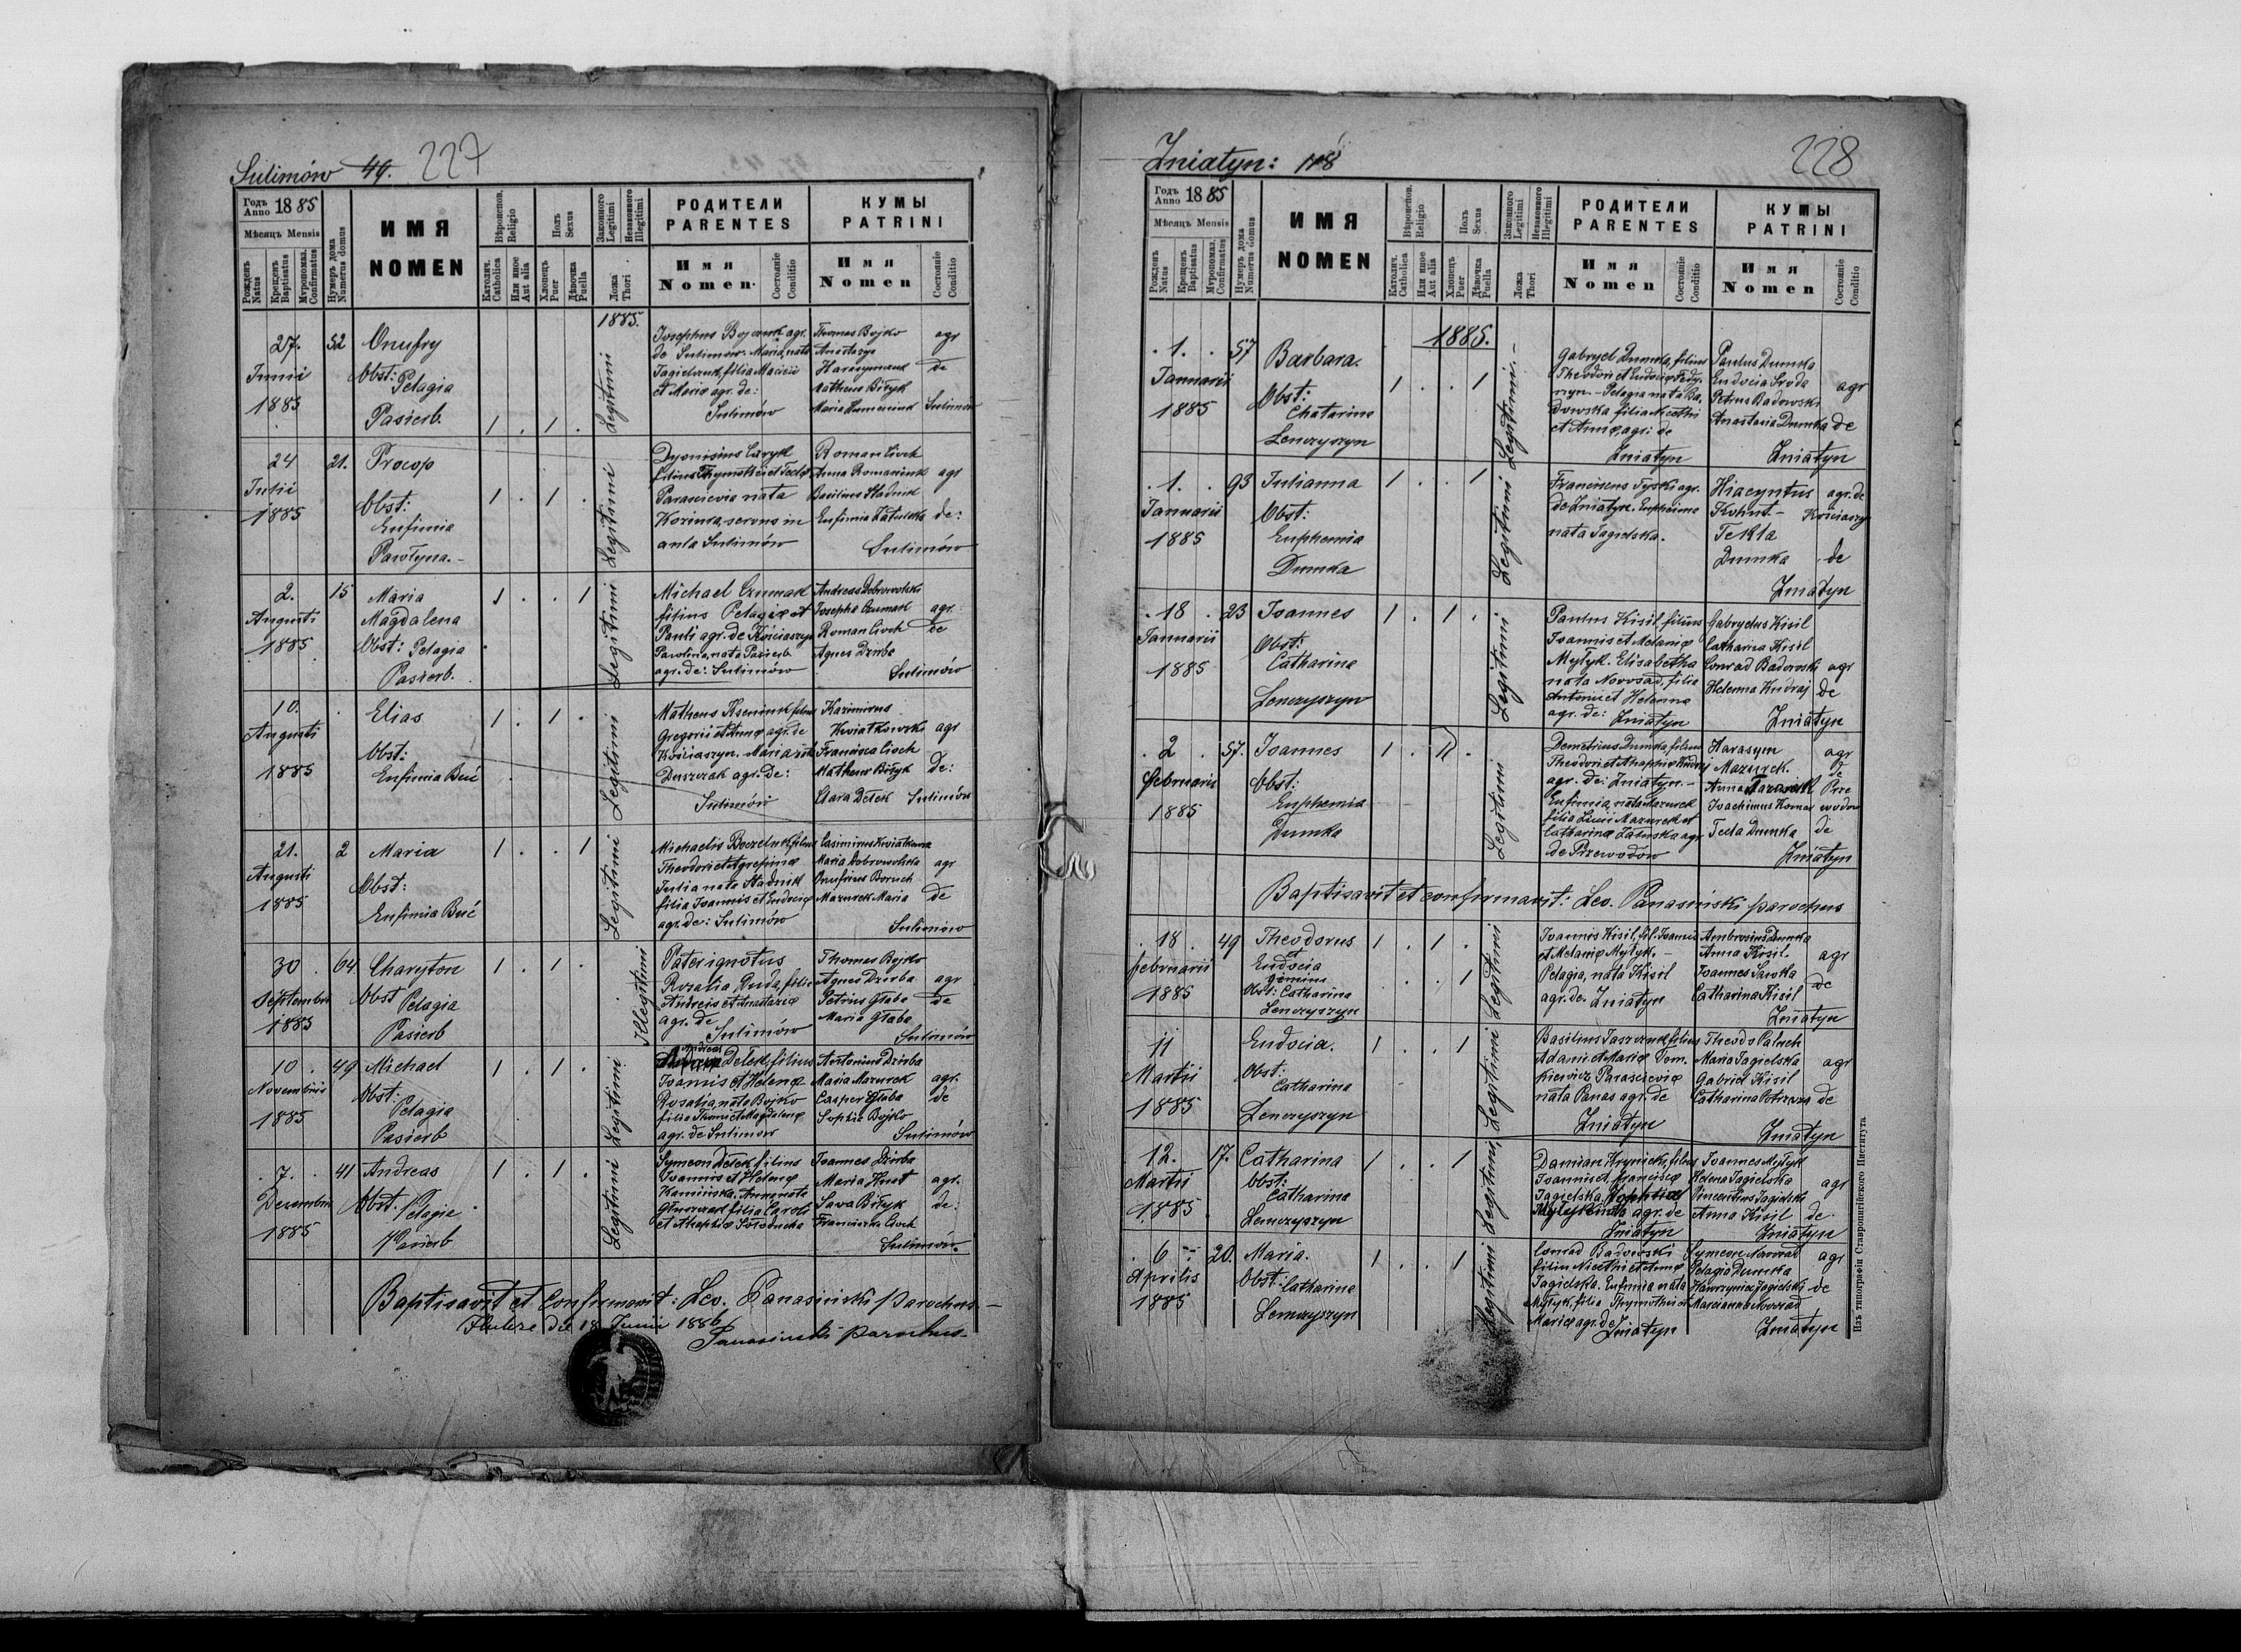 Sulimów 49. 227
Годъ Anno 1885
Мѣсяцъ Mensis
Рожденъ Natus
Крещенъ Baptisatus
Мѵропомаз. Confirmatus
Нумеръ дома Numerus domus
ИМЯ
NOMEN
Вѣроиспов. Religio
Католич. Catholica
Или иное Aut alia
Полъ Sexus
Хлопецъ Puer
Дѣвочка Puella
Законного Legitimi
Незаконного Illegitimi
Ложа Thori
РОДИТЕЛИ
PARENTES
Имя
Nomen
Состояніе Conditio
КУМЫ
PATRINI
Имя
Nomen
Состояніе Conditio
1885.
27. Junii 1885
52
Onufry
Obst: Pelagia
Pasierb.
1 . 1 .
Legitimi
de Sulimow. Maria, nata
et Maria agr. de:
Sulimów
Thomas Bojko agr
Anastazya
de
Matheus Biłyk
Sulimów
24 Julii 1885
21.
Procop
Obst:
Eufimia
1 . 1 .
Legitimi
Dyonisius
filius Thymothei et Teclæ
Parascievia nata
anla Sulimów
Roman Cioch
Anna Romaniuk agr
Basilius Stadnik
Eufimia de:
Sulimów
2. Augusti 1885
15
Maria
Magdalena
Obst: Pelagia
Pasierb.
1 . . 1
Legitimi
Michael
filius Pelagiæ et
Pauli agr. de Kościaszyn
Parolina, nata Pasierb
agr. de: Sulimów
Andreas Dobrowolski
Josepha agr.
Roman Cioch de
Agnes Dziuba
Sulimów
10. Augusti 1885
Elias
Obst:
Eufimia Buć
1 . 1 .
Legitimi
Gregorii et Annæ agr. de
Kościaszyn. Maria
Duszczak agr. de:
Sulimów
Kazimirus
Kwiatkowski agr
Francisca Cioch
Matheus Biłyk de:
Clara Delek Sulimów
21. Augusti 1885
2
Maria
Obst:
Eufimia Buć
1 . . 1
Legitimi
Theodori et Agrefinæ
Julia nata Stadnik
filia Joannis et Eudociæ
agr. de: Sulimów
Casimirus Kwiatkowski
Maria Dobrowolska agr
Onufrius Boruch
Mazurek Maria de
Sulimów
30 Septembris 1885
64
Charyton
Obst Pelagia
Pasierb
1 . 1 .
Illegitimi
Pater ignotus
Rosalia Ruda, filia
Andreis et Anastaziæ
agr. de
Sulimów
Thomas Bojko
Agnes Dziuba agr
Petrius Głaba de
Maria Głaba
Sulimów
10 Novembris 1885
49
Michael
Obst: Pelagia
Pasierb
1 . 1 .
Legitimi
Andreas
Delek, filius
Joannis et Helenæ
Rosalia, nata Bojko
filia Thomi et Magdalenæ
agr. de Sulimow
Antonius Dziuba
Maria Mazurek agr.
Casper Głaba de
Sophia Bojko
Sulimów
7. Decembris 1885
41
Andreas
Obst. Pelagia
Pasierb
1 . 1 .
Legitimi
Symeon Delek filius
Joannis et Helenæ
Kaminska. Anna nata
filia Caroli
Joannes Dziuba
Maria Hnat agr.
Sava Biłyk de:
Franciszka Cioch
Sulimów.
Baptisavit et confirmavit: Leo. Panasiński parochus
die 18 Junii 1886
Panasiński parochus
Żniatyn: 118 228
Годъ Anno 1885
Мѣсяцъ Mensis
Рожденъ Natus
Крещенъ Baptisatus
Мѵропомаз. Confirmatus
Нумеръ дома Numerus domus
ИМЯ
NOMEN
Вѣроиспов. Religio
Католич. Catholica
Или иное Aut alia
Полъ Sexus
Хлопецъ Puer
Дѣвочка Puella
Законного Legitimi
Незаконного Illegitimi
Ложа Thori
РОДИТЕЛИ
PARENTES
Имя
Nomen
Состояніе Conditio
КУМЫ
PATRINI
Имя
Nomen
Состояніе Conditio
1885.
1. Januarii 1885
57
Barbara.
Obst:
Chatarina
Lenczyszyn
1 . . 1
Legitimi
Gabryel Dumka, filius
Theodori et Eudociæ Fedy-
nyn. Pelagia nata Ba-
dowska filia Nicethi
et Annæ, agr: de
Żniatyn
Paulus Dumka
Eudocia Sroda agr
Petrus Badowski
Anastasia Dumka de
Żniatyn
1. Januarii 1885
93
Julianna
Obst:
Euphemia
Dumka
1 . . 1
Legitimi
Franciscus Tyski agr.
de Żniatyn. Euphemia
nata Jagielska.
Hiacyntus agr. de
Kohut - Kościaszyn
Tekla
Dumka de
Żniatyn
18 Januarii 1885
23
Joannes
Obst:
Catharina
Lenczyszyn
1 . 1 .
Legitimi
Paulus Kisil, filius
Joannis et Melaniæ
Mytyk. Elisabetha
nata Nowosad, filia
Antonii et Helenna
agr. de: Żniatyn
Gabryelus Kisil
Catharina Kisil
Conrad Badowski agr
Helenna Kudraj de
Żniatyn
2 Februarii 1885
57.
Joannes
Obst:
Euphemia
Dumka
1 . 1 .
Legitimi
Demetrius Dumka, filius
Theodori et Ahaphiæ Kudraj
agr. de: Żniatyn. -
Eufimia, nata Mazurek
filia Lucii Mazurek et
Catharinæ Załuska agr
de Przewodów
Harasym agr
Mazurek. de
Anna Prze
Joachimus Komar wodow
Tecla Dumka de
Żniatyn
Baptisavit et confirmavit: Leo. Panasiński parochus
18 Februarii 1885
49
Theodorus
et
Eudocia
Gemini
Obst: Catharina
Lenczyszyn
1 . 1 .
. . . 1
Legitimi
Joannis Kisil, fil. Joannis
et Melaniæ Mytyk. -
Pelagia, nata Kisil
agr. de. Żniatyn
Ambrosius Dumka
Anna Kisil. agr
Joannes Sawka
Catharina Kisil de
Żniatyn
11 Martii 1885
Eudocia.
Obst:
Catharina
Lenczyszyn
1 . . 1
Legitimi
Basilius Jaszczuk filius
Adami et Mariæ Dom-
kiewicz. Parascieviæ
nata Panas agr. de
Żniatyn
Theodo Paluch
Maria Jagielska agr
Gabriel Kisil
Catharina de
Żniatyn
12. Martii 1885
17.
Catharina
Obst:
Catharina
Lenczyszyn
1 . . 1
Legitimi
Damian Krynicki, filius
Joannis et Franciscæ
Jagielska,
agr. de
Żniatyn
Joannes Mytyk
Helena Jagielska agr
Vincentius Jagielski
Anna Kisil de
Żniatyn
6 Aprilis 1885
20.
Maria.
Obst: Catharina
Lenczyszyn
1 . . 1
Legitimi
Conrad Badowski
filius Nicethi et Annæ
Jagielska. Eufimia nata
Mytyk, filia Thymothei et
Mariæ agr. de Żniatyn
Symeon Nowosad agr
Pelagia Dumka
Jagielski de
Marcianna Nowosad
Żniatyn
Изъ типографіи Ставропигійского Института